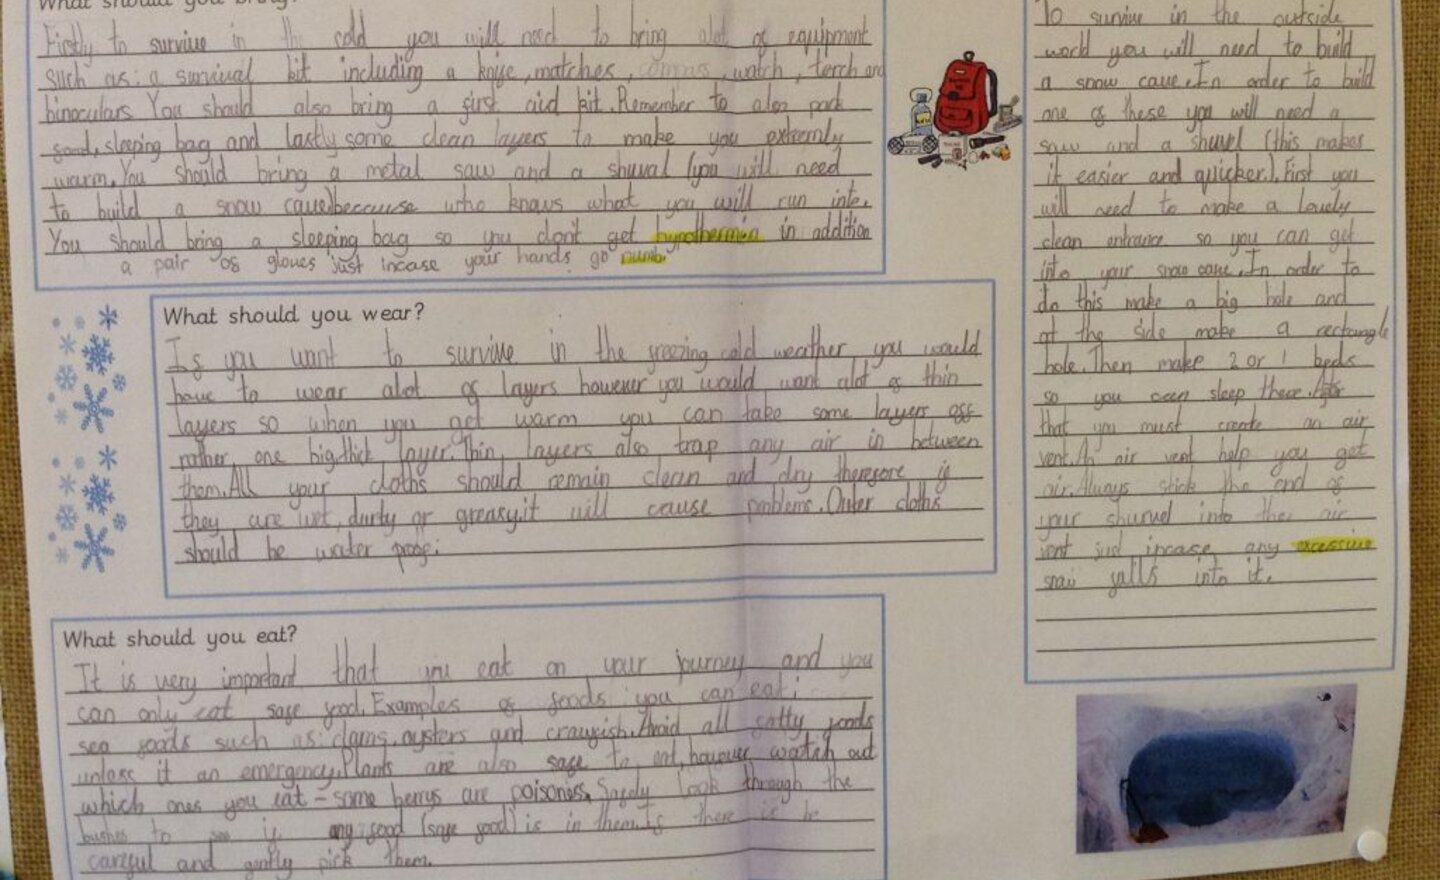 What should you bring?
Firstly to survive in the cold you will need to bring alot of equipment
such as: a survival kit including a knife, matches, watch, torch and
binoculars. You should also bring a first aid kit. Remember to also pack
food, sleeping bag and lastly some clean layers to make you extremly
warm. You should bring a metal saw and a shuval (you will need
to build a snow cave) because who knows what you will run into.
You should bring a sleeping bag so you don't get hypothermia in addition
a pair of gloves just incase your hands go numb.
What should you wear?
If you want to survive in the freezing cold weather you would
have to wear alot of layers however you would want alot of thin
layers so when you get warm you can take some layers off
rather one big thick layer. Thin layers also trap any air in between
them. All your cloths should remain clean and dry therefore if
they are wet, durty or greasy, it will cause problems. Outer cloths
should be water proof.
What should you eat?
It is very important that you eat on your journey and you
can only eat safe food. Examples of foods you can eat:
sea foods such as: clams, oysters and crayfish. Avoid all fatty foods
unless it an emergency. Plants are also safe to eat, however watch out
which ones you eat - some berrys are poisones. Safely look through the
bushes to see if any food (safe food) is in them. If there is be
careful and gently pick them.
To survive in the outside
world you will need to build
a snow cave. In order to build
one of these you will need a
saw and a shuvel (this makes
it easier and quicker). First you
will need to make a lovely
clean entrance so you can get
into your snow cave. In order to
do this make a big hole and
at the side make a rectangle
hole. Then make 2 or 1 beds
so you can sleep there. After
that you must create an air
vent. An air vent help you get
air. Always stick the end of
your shuvel into the air
vent just incase any excessive
snow falls into it.